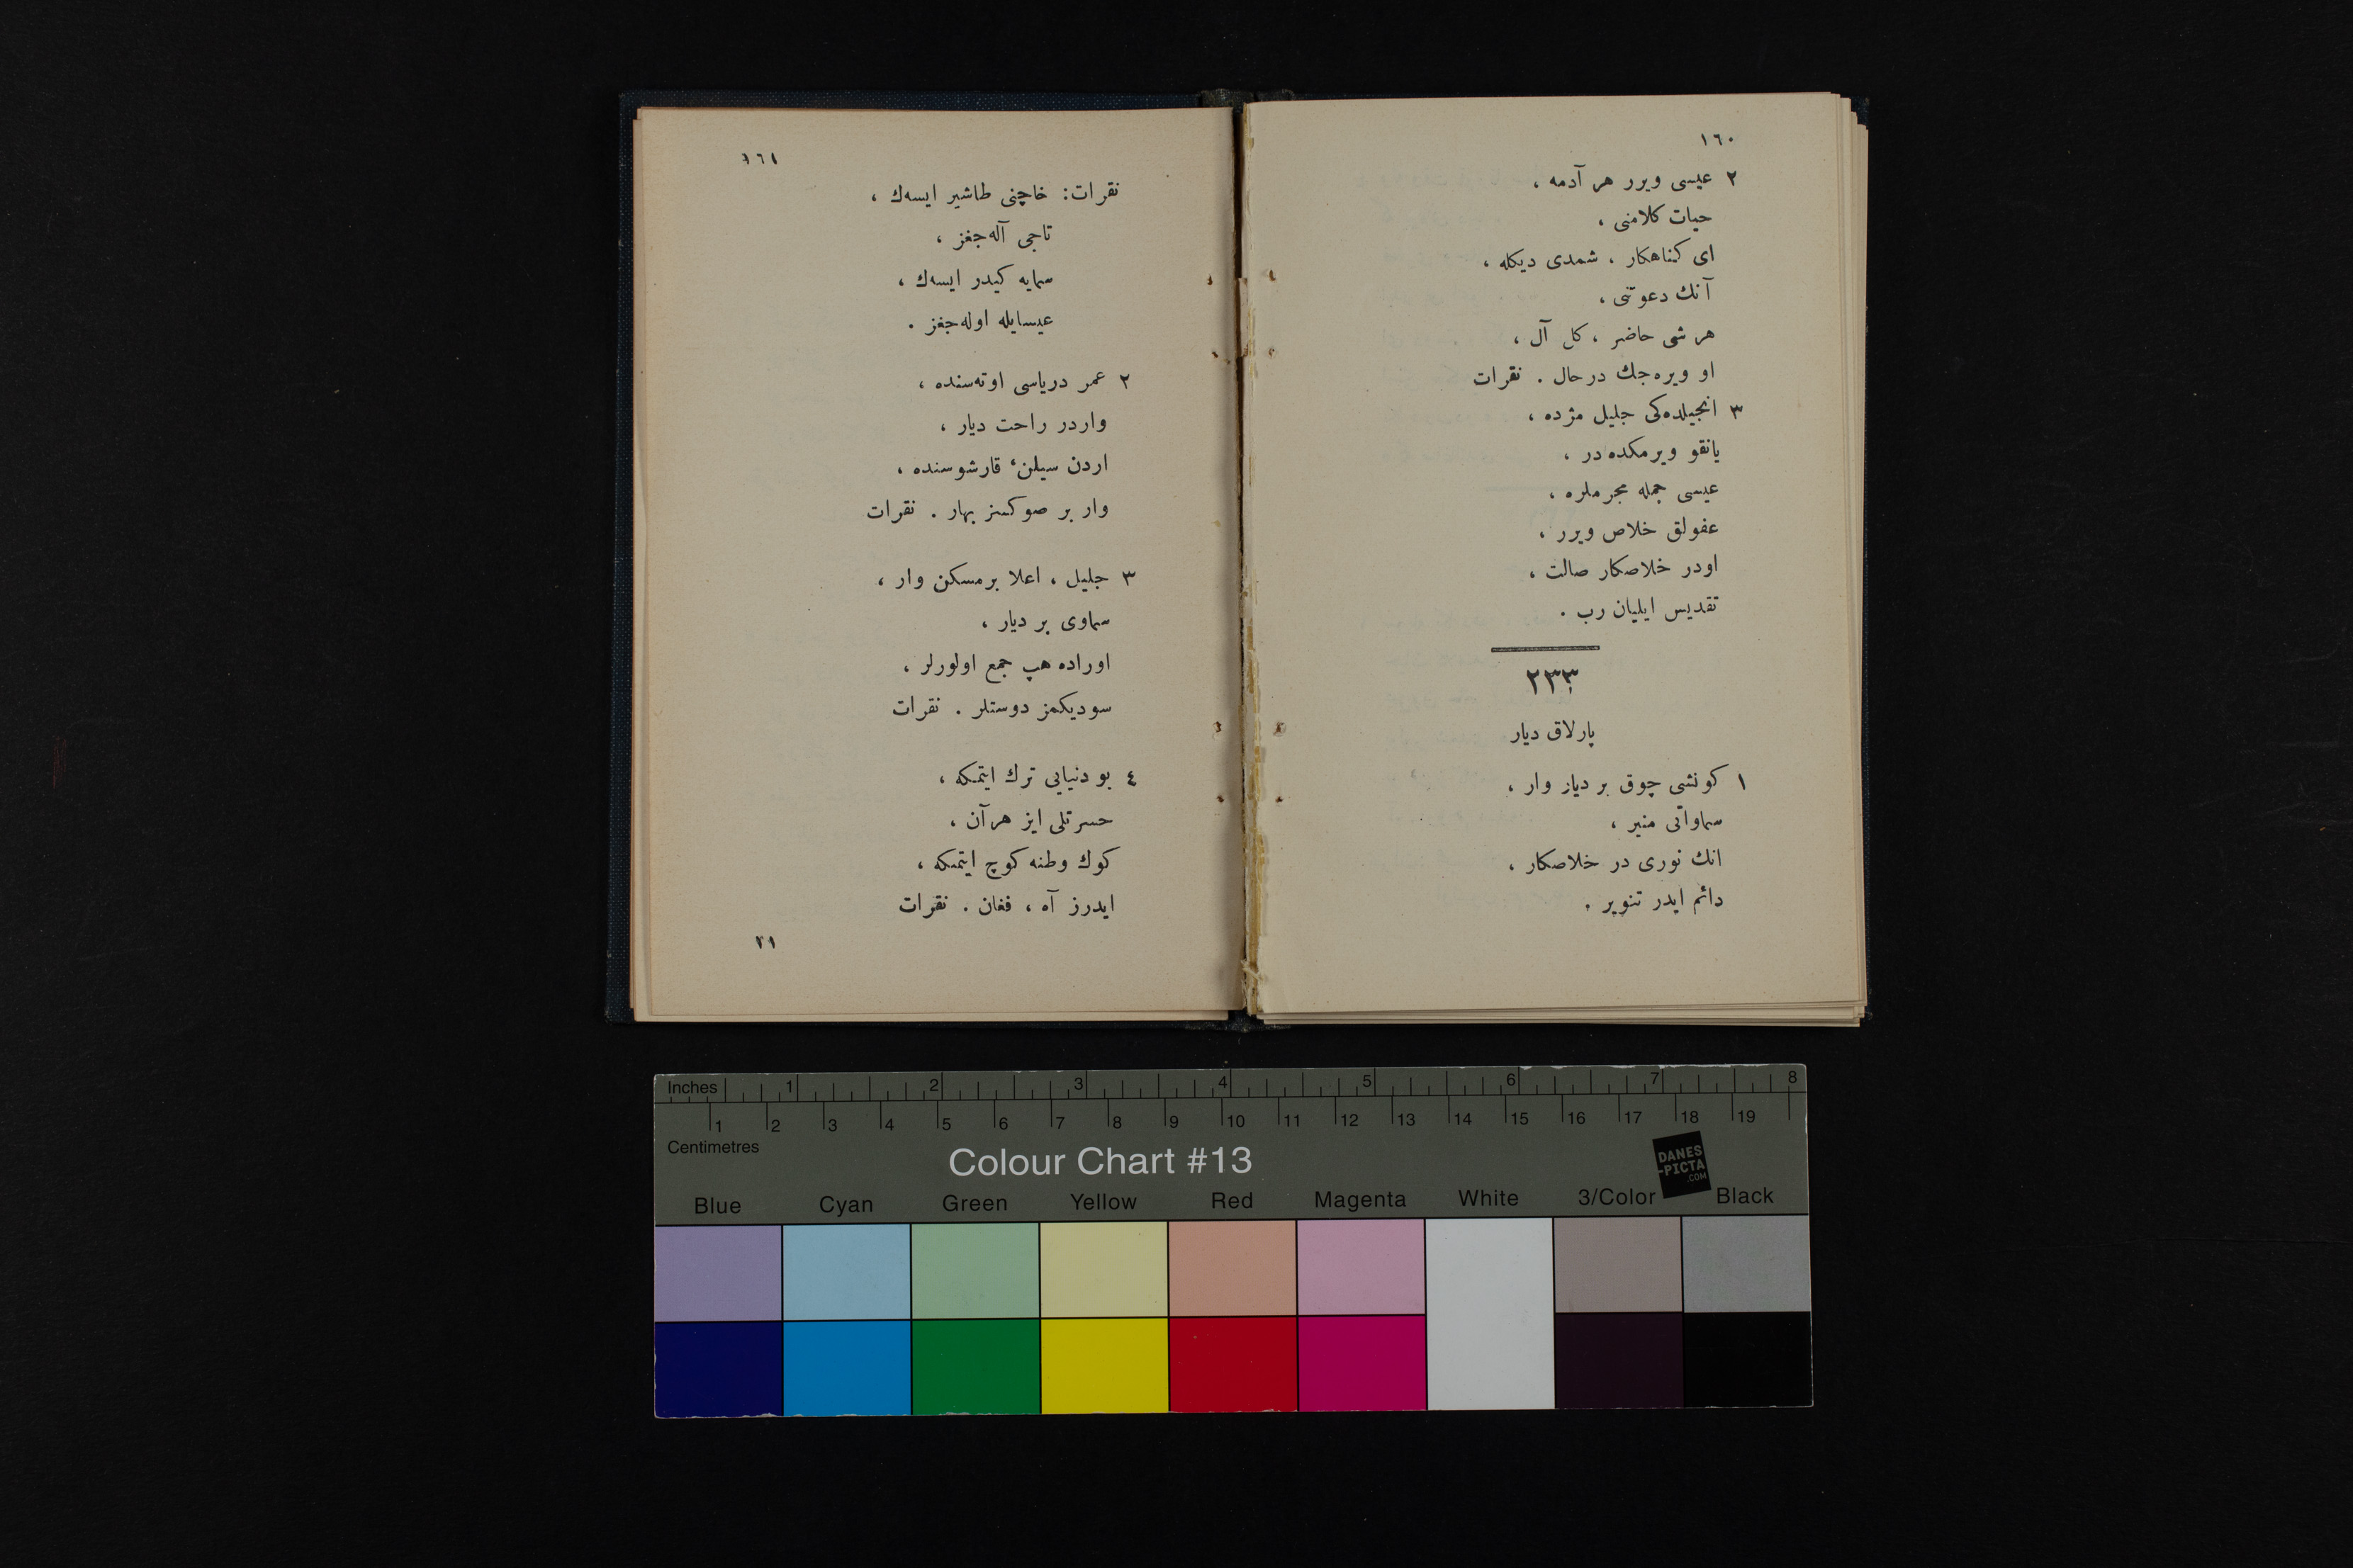 ١٦٠
٢ عيسى ويرر هر آدمه ،
حيات كلامنى ،
اى كناهكار ، شمدى ديكله ،
آنك دعوتنى ،
هر شى حاضر ، كل آل ،
او ويره‌جك درحال . نقرات
٣ انجيلده‌كى جليل مژده ،
يانقو ويرمكده در ،
عيسى جمله مجرملره ،
عفولق خلاص ويرر ،
اودر خلاصكار صالت ،
تقديس ايليان رب .
٢٣٣
پارلاق ديار
١ كونشى چوق بر ديار وار ،
سماواتى منير ،
انك نورى در خلاصكار ،
دائم ايدر تنوير .
١٦١
نقرات: خاچنى طاشير ايسه‌ك ،
تاجى آله‌جغز ،
سمايه كيدر ايسه‌ك ،
عيسايله اوله‌جغز .
٢ عمر درياسى اوته‌سنده ،
واردر راحت ديار ،
اردن سيلن، قارشوسنده ،
وار بر صوكسز بهار . نقرات
٣ جليل ، اعلا برمسكن وار ،
سماوى بر ديار ،
اوراده هپ جمع اولورلر ،
سوديكمز دوستلر . نقرات
٤ بو دنيايى ترك ايتمكه ،
حسرتلى ايز هرآن ،
كوك وطنه كوچ ايتمكه ،
ايدرز آه ، فغان . نقرات
٢١
Inches 1 2 3 4 5 6 7 8
1 2 3 4 5 6 7 8 9 10 11 12 13 14 15 16 17 18 19
Centimetres
Colour Chart #13
DANES
-PICTA
.COM
Blue Cyan Green Yellow Red Magenta White 3/Color Black